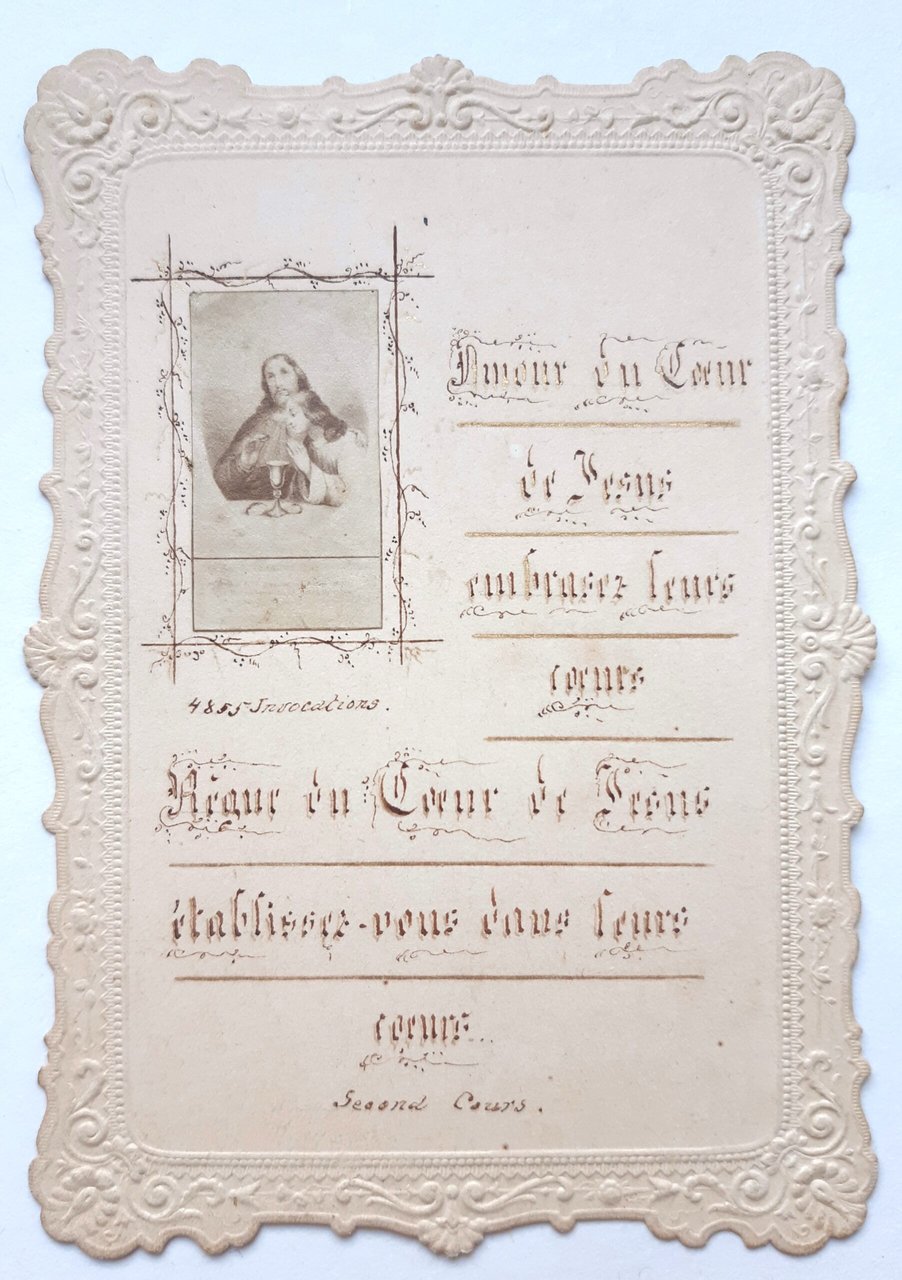 Amour du Cœur
de Jesus
embrasez leurs
cœurs
4855 Invocations.
Règne du Cœur de Jesus
établissez-vous dans leurs
cœurs...
Second Cours.